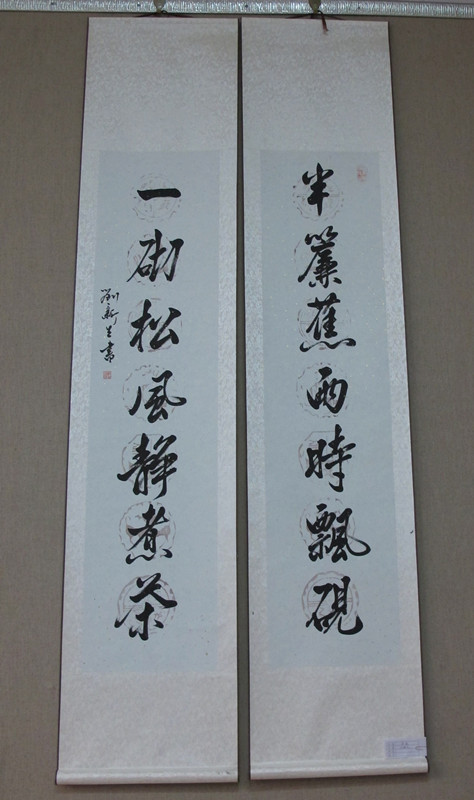 半簾蕉雨時飄硯
一砌松風靜煮茶
劉新生書